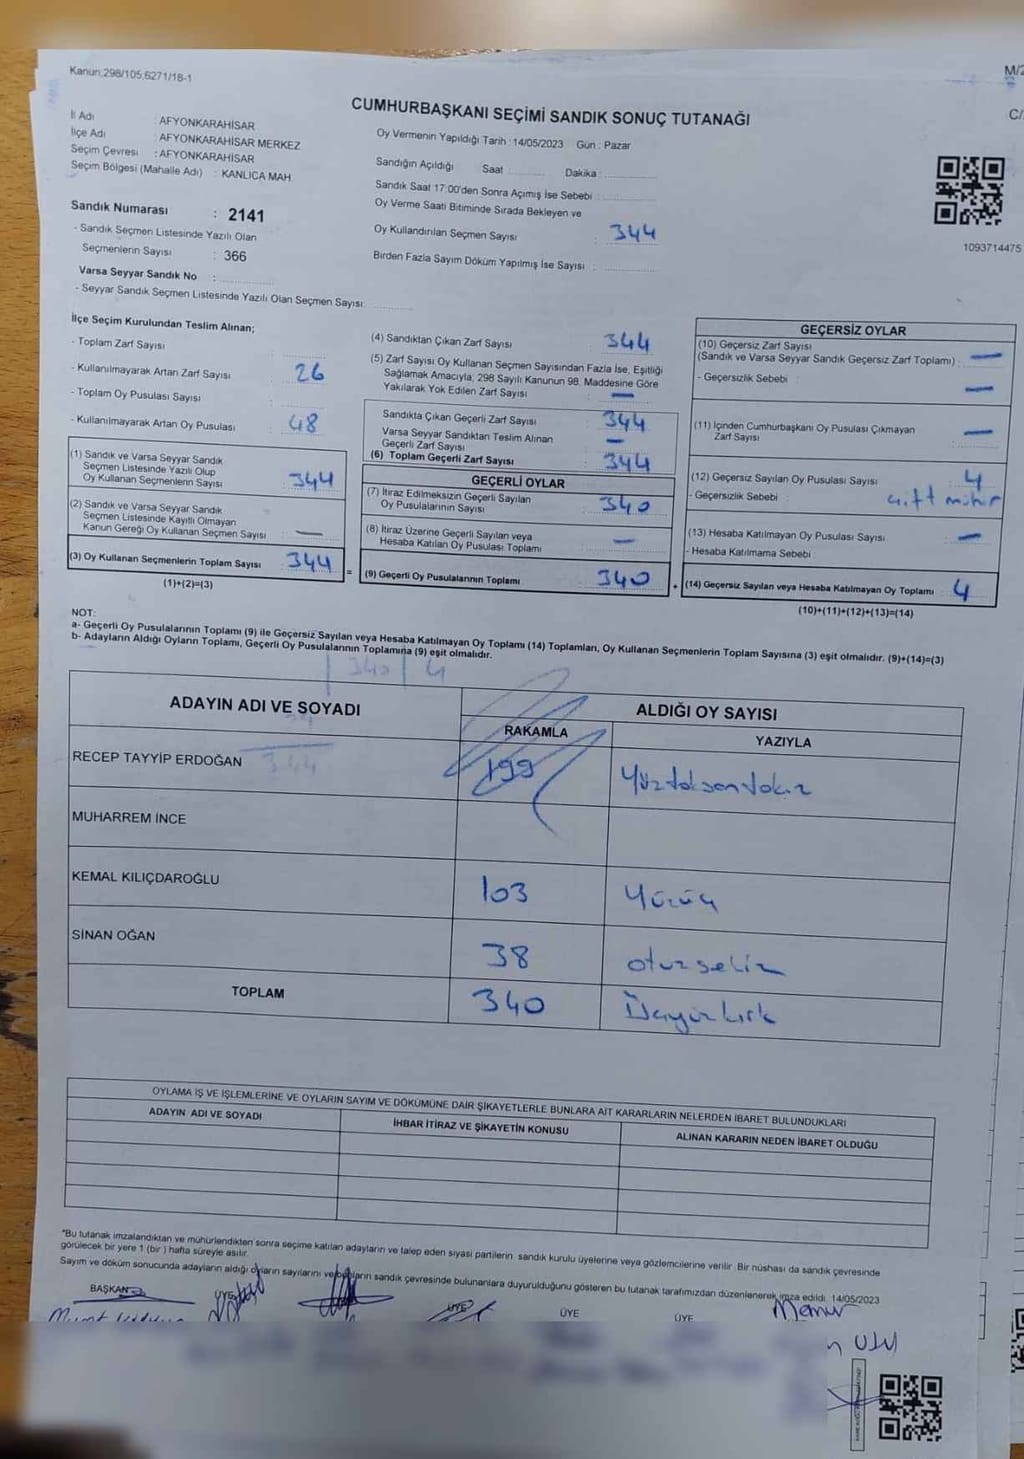 Kanun;298/105,6271/18-1
M/2
CUMHURBAŞKANI SEÇİMİ SANDIK SONUÇ TUTANAĞI
C/
İl Adı : AFYONKARAHİSAR
İlçe Adı : AFYONKARAHİSAR MERKEZ
Seçim Çevresi : AFYONKARAHİSAR
Seçim Bölgesi (Mahalle Adı) : KANLICA MAH.
Oy Vermenin Yapıldığı Tarih : 14/05/2023 Gün : Pazar
Sandığın Açıldığı Saat Dakika :
Sandık Saat 17:00'den Sonra Açımış İse Sebebi :
Oy Verme Saati Bitiminde Sırada Bekleyen ve
Oy Kullandırılan Seçmen Sayısı : 344
Birden Fazla Sayım Döküm Yapılmış İse Sayısı :
1093714475
Sandık Numarası : 2141
- Sandık Seçmen Listesinde Yazılı Olan
Seçmenlerin Sayısı : 366
Varsa Seyyar Sandık No :
- Seyyar Sandık Seçmen Listesinde Yazılı Olan Seçmen Sayısı:
İlçe Seçim Kurulundan Teslim Alınan;
- Toplam Zarf Sayısı :
- Kullanılmayarak Artan Zarf Sayısı : 26
- Toplam Oy Pusulası Sayısı :
- Kullanılmayarak Artan Oy Pusulası : 48
(1) Sandık ve Varsa Seyyar Sandık
Seçmen Listesinde Yazılı Olup
Oy Kullanan Seçmenlerin Sayısı : 344
(2) Sandık ve Varsa Seyyar Sandık
Seçmen Listesinde Kayıtlı Olmayan
Kanun Gereği Oy Kullanan Seçmen Sayısı : —
(3) Oy Kullanan Seçmenlerin Toplam Sayısı : 344
(1)+(2)=(3)
=
(4) Sandıktan Çıkan Zarf Sayısı : 344
(5) Zarf Sayısı Oy Kullanan Seçmen Sayısından Fazla İse, Eşitliği
Sağlamak Amacıyla; 298 Sayılı Kanunun 98. Maddesine Göre
Yakılarak Yok Edilen Zarf Sayısı : —
Sandıkta Çıkan Geçerli Zarf Sayısı : 344
Varsa Seyyar Sandıktan Teslim Alınan
Geçerli Zarf Sayısı : —
(6) Toplam Geçerli Zarf Sayısı : 344
GEÇERLİ OYLAR
(7) İtiraz Edilmeksizin Geçerli Sayılan
Oy Pusulalarının Sayısı : 340
(8) İtiraz Üzerine Geçerli Sayılan veya
Hesaba Katılan Oy Pusulası Toplamı : —
(9) Geçerli Oy Pusulalarının Toplamı : 340
+
GEÇERSİZ OYLAR
(10) Geçersiz Zarf Sayısı
(Sandık ve Varsa Seyyar Sandık Geçersiz Zarf Toplamı) : —
- Geçersizlik Sebebi : —
(11) İçinden Cumhurbaşkanı Oy Pusulası Çıkmayan
Zarf Sayısı : —
(12) Geçersiz Sayılan Oy Pusulası Sayısı : 4
- Geçersizlik Sebebi : çift mühür
(13) Hesaba Katılmayan Oy Pusulası Sayısı : —
- Hesaba Katılmama Sebebi :
(14) Geçersiz Sayılan veya Hesaba Katılmayan Oy Toplamı : 4
(10)+(11)+(12)+(13)=(14)
NOT:
a- Geçerli Oy Pusulalarının Toplamı (9) ile Geçersiz Sayılan veya Hesaba Katılmayan Oy Toplamı (14) Toplamları, Oy Kullanan Seçmenlerin Toplam Sayısına (3) eşit olmalıdır. (9)+(14)=(3)
b- Adayların Aldığı Oyların Toplamı, Geçerli Oy Pusulalarının Toplamına (9) eşit olmalıdır.
340 4
344
ADAYIN ADI VE SOYADI
ALDIĞI OY SAYISI
RAKAMLA YAZIYLA
RECEP TAYYİP ERDOĞAN 199 Yüzdoksandokuz
MUHARREM İNCE
KEMAL KILIÇDAROĞLU 103 Yüzüç
SİNAN OĞAN 38 otuzsekiz
TOPLAM 340 Üçyüzkırk
OYLAMA İŞ VE İŞLEMLERİNE VE OYLARIN SAYIM VE DÖKÜMÜNE DAİR ŞİKAYETLERLE BUNLARA AİT KARARLARIN NELERDEN İBARET BULUNDUKLARI
ADAYIN ADI VE SOYADI İHBAR İTİRAZ VE ŞİKAYETİN KONUSU ALINAN KARARIN NEDEN İBARET OLDUĞU
*Bu tutanak imzalandıktan ve mühürlendikten sonra seçime katılan adayların ve talep eden siyasi partilerin sandık kurulu üyelerine veya gözlemcilerine verilir. Bir nüshası da sandık çevresinde
görülecek bir yere 1 (bir ) hafta süreyle asılır.
Sayım ve döküm sonucunda adayların aldığı oyların sayılarını ve sandık çevresinde bulunanlara duyurulduğunu gösteren bu tutanak tarafımızdan düzenlenerek imza edildi. 14/05/2023
BAŞKAN ÜYE ÜYE ÜYE ÜYE Memur